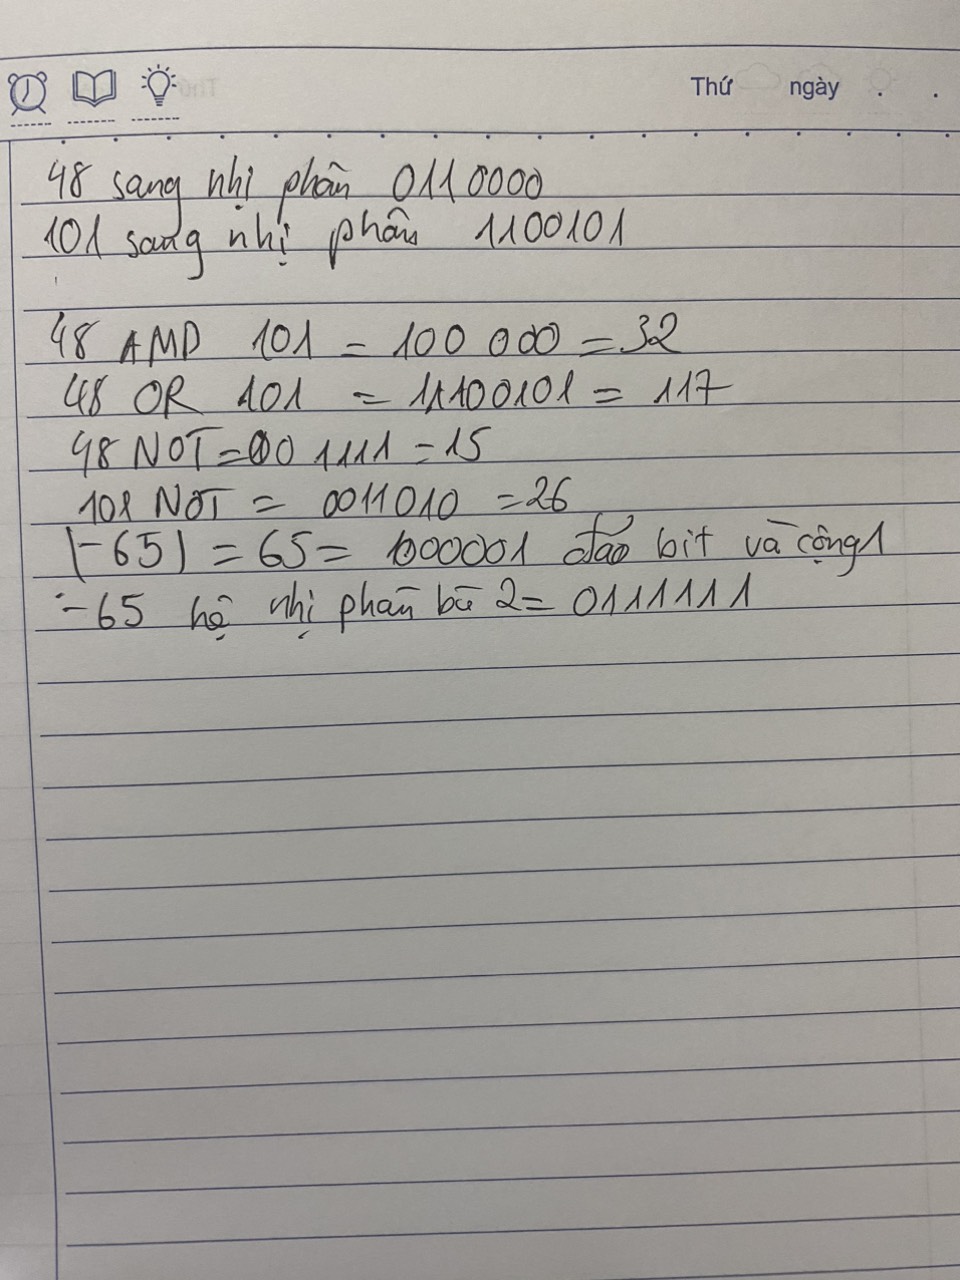 Thứ ngày . .
48 sang nhị phân 0110000
101 sang nhị phân 1100101
48 AMD 101 = 100 000 = 32
48 OR 101 = 11100101 = 117
48 NOT = 00 1111 = 15
101 NOT = 0011010 = 26
|-65| = 65 = 1000001 đảo bit và cộng 1
:-65 hệ nhị phân bù 2 = 0111111